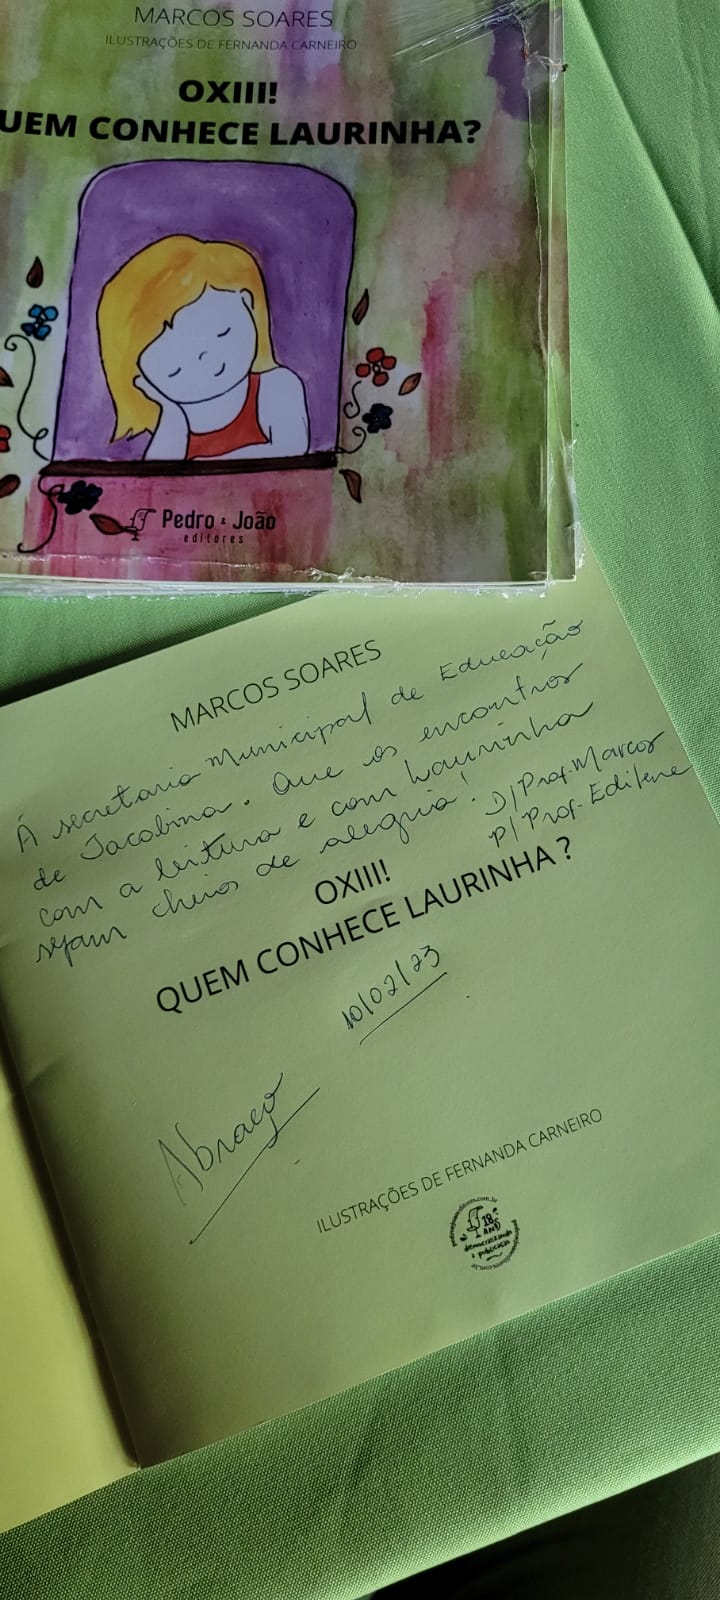 MARCOS SOARES
ILUSTRAÇÕES DE FERNANDA CARNEIRO
OXIII!
UEM CONHECE LAURINHA?
Pedro & João
editores
MARCOS SOARES
Á secretaria Municipal de Educação
de Jacobina. Que os encontros
com a leitura e com Laurinha
sejam cheios de alegria!
D/ Prof. Marcos
P/ Prof. Edilene
OXIII!
QUEM CONHECE LAURINHA?
10/02/23
Abraço
ILUSTRAÇÕES DE FERNANDA CARNEIRO